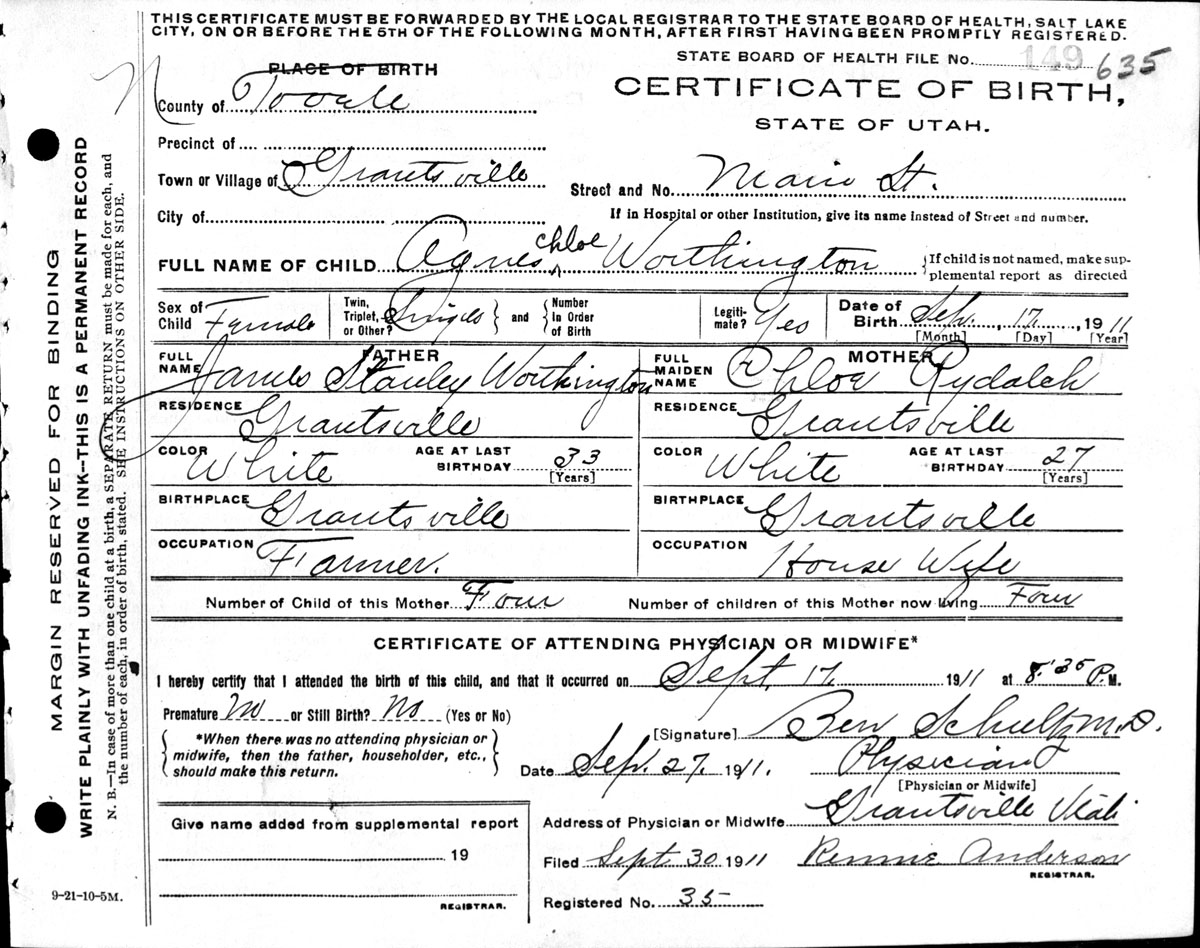 THIS CERTIFICATE MUST BE FORWARDED BY THE LOCAL REGISTRAR TO THE STATE BOARD OF HEALTH, SALT LAKE
CITY, ON OR BEFORE THE 5TH OF THE FOLLOWING MONTH, AFTER FIRST HAVING BEEN PROMPTLY REGISTERED.
STATE BOARD OF HEALTH FILE No. 149 635
PLACE OF BIRTH
CERTIFICATE OF BIRTH,
County of Tooele
STATE OF UTAH.
Precinct of
Town or Village of Grantsville
Street and No. Main St.
City of
If in Hospital or other Institution, give its name instead of Street and number.
chloe
FULL NAME OF CHILD Agnes ^ Worthington
{If child is not named, make sup-
plemental report as directed
Sex of Child Female
Twin, Triplet, or Other? Single } and { Number In Order of Birth
Legiti- mate? Yes
Date of Birth Sep. 17, 1911
[Month] [Day] [Year]
FATHER
FULL NAME James Stanley Worthington
MOTHER
FULL MAIDEN NAME Chloe Rydalch
RESIDENCE Grantsville
RESIDENCE Grantsville
COLOR White AGE AT LAST BIRTHDAY 33 [Years]
COLOR White AGE AT LAST BIRTHDAY 27 [Years]
BIRTHPLACE Grantsville
BIRTHPLACE Grantsville
OCCUPATION Farmer.
OCCUPATION House Wife
Number of Child of this Mother Four
Number of children of this Mother now living Four
CERTIFICATE OF ATTENDING PHYSICIAN OR MIDWIFE*
I hereby certify that I attended the birth of this child, and that it occurred on Sept. 17 1911 at 8:35 P.M.
Premature No or Still Birth? No (Yes or No)
[Signature] Ben Schultz M.D.
*When there was no attending physician or
midwife, then the father, householder, etc.,
should make this return.
Date Sep. 27. 1911. Physician
[Physician or Midwife]
Address of Physician or Midwife Grantsville Utah
Give name added from supplemental report
19
REGISTRAR.
Filed Sept 30 1911 Rennie Anderson
REGISTRAR.
Registered No. 35
9-21-10-5M.
MARGIN RESERVED FOR BINDING
WRITE PLAINLY WITH UNFADING INK--THIS IS A PERMANENT RECORD
N. B.--In case of more than one child at a birth, a SEPARATE RETURN must be made for each, and
the number of each, in order of birth, stated. SHE INSTRUCTIONS ON OTHER SIDE.